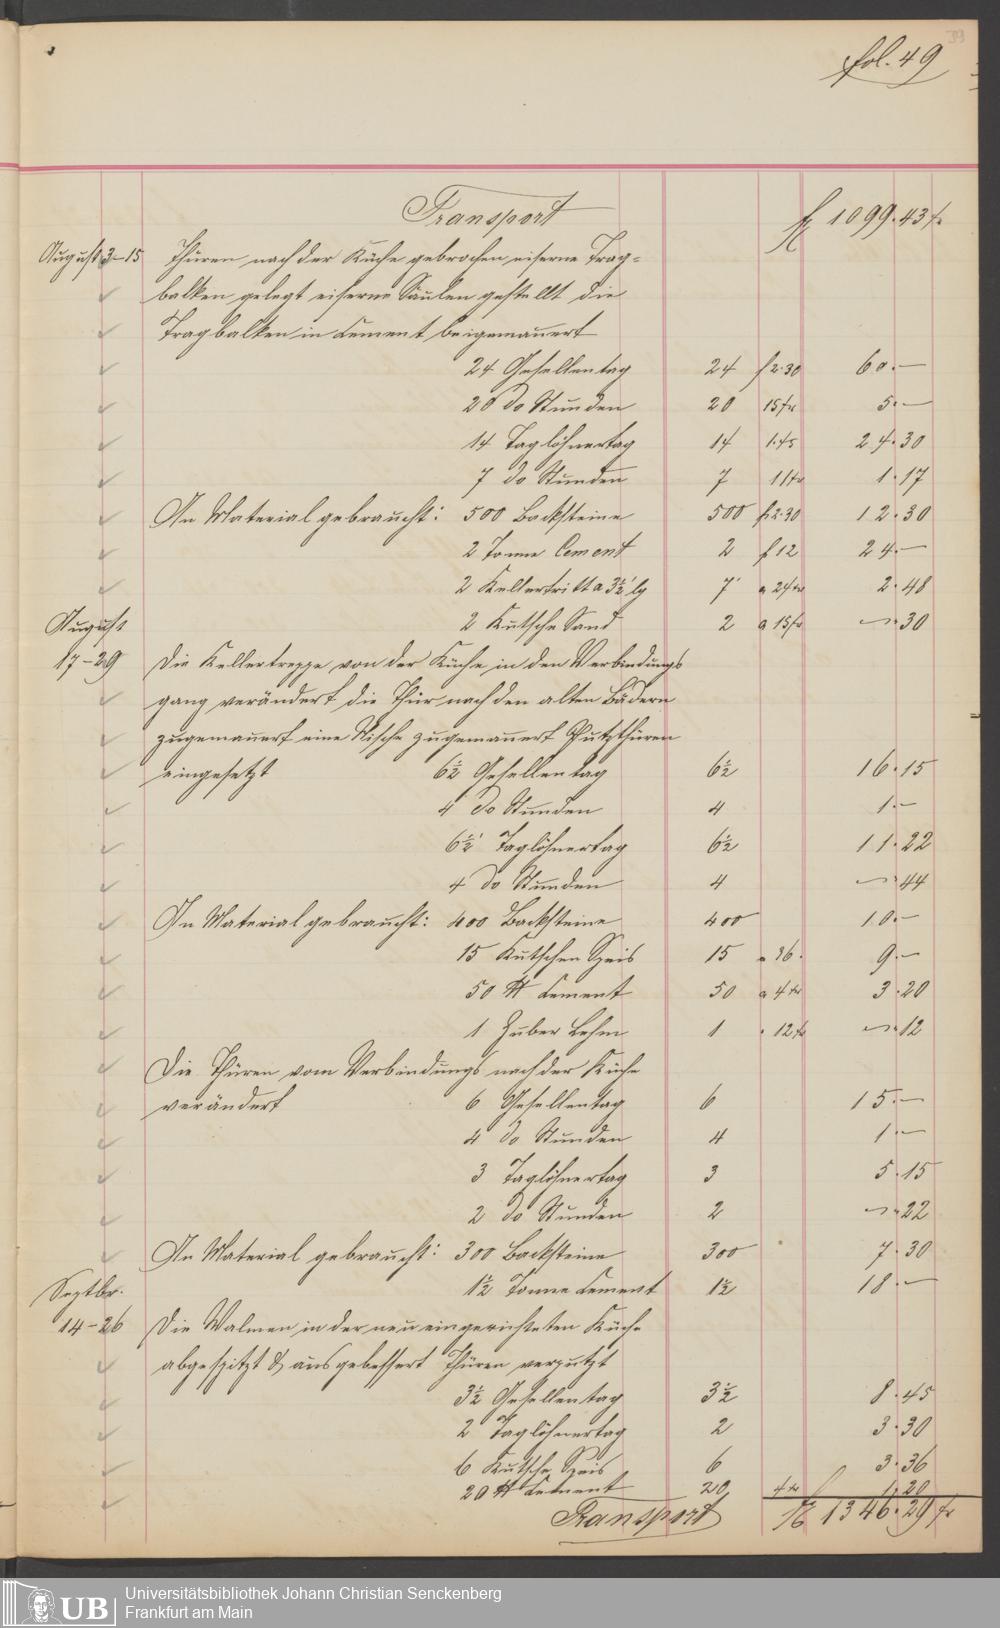 39
fol. 49
Transport f 1099.43 kr
August 3-15 Thüren nach der Küche gebrochen eiserne Trag-
balken gelegt eiserne Säulen gestellt die
Tragbalken in Cement beigemauert
24 Gesellentag 24 f 2.30 60.—
20 do Stunden 20 15 kr 5.—
14 Taglöhnertag 14 1.45 24.30
7 do Stunden 7 11 kr 1.17
An Material gebraucht: 500 Backsteine 500 f 2.30 12.30
2 Tonne Cement 2 f 12 24.—
2 Kellertritt a 3½' lg 7' a 24 kr 2.48
August 2 Kutsche Sand 2 a 15 kr —.30
17-29 Die Kellertreppe von der Küche in den Verbindungs
gang verändert die Thür nach den alten Bädern
zugemauert eine Nische zugemauert Putzthüren
eingesetzt 6½ Gesellentag 6½ 16.15
4 do Stunden 4 1.—
6½ Taglöhnertag 6½ 11.22
4 do Stunden 4 —.44
An Material gebraucht: 400 Backsteine 400 10.—
15 Kutschen Speis 15 a 36. 9.—
50 ℔ Cement 50 a 4 kr 3.20
1 Zuber Lehm 1 " 12 kr —.12
Die Thüren vom Verbindungs nach der Küche
verändert 6 Gesellentag 6 15.—
4 do Stunden 4 1.—
3 Taglöhnertag 3 5.15
2 do Stunden 2 —.22
An Material gebraucht: 300 Backsteine 300 7.30
Septbr. 1½ Tonne Cement 1½ 18.—
14-26 Die Walmen in der neu eingerichteten Küche
abgespitzt & ausgebessert Thüren verputzt
3½ Gesellentag 3½ 8.45
2 Taglöhnertag 2 3.30
6 Kutsche Speis 6 3.36
20 ℔ Cement 20 4 kr 1.20
Transport f 1346.29 kr
UB
Universitätsbibliothek Johann Christian Senckenberg
Frankfurt am Main